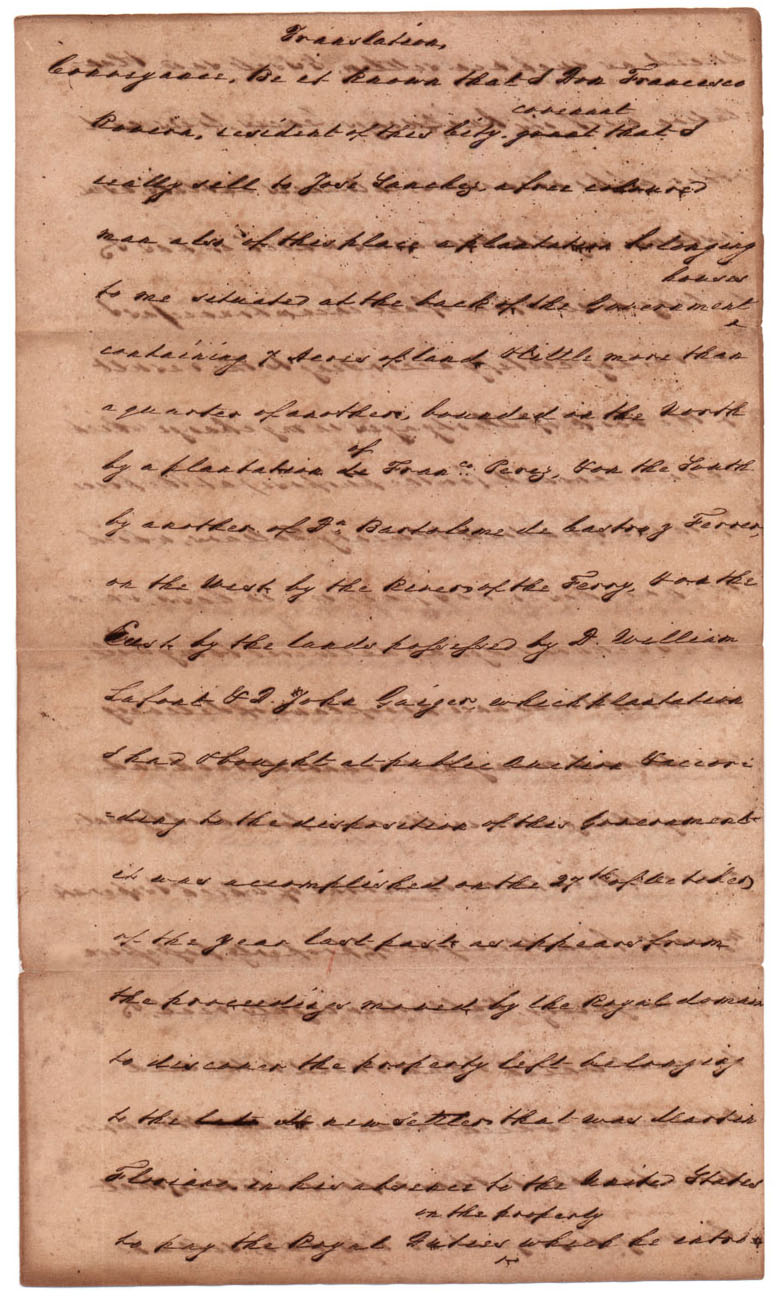 Translation,
Conveyance, Be it known that I Don Francisco
covenant
Rovira, resident of this City, grant that I
really sell to José Sanchez a free coloured
man also of this place a plantation belonging
houses
to me situated at the back of the Government
^
containing 7 Acres of land & little more than
a quarter of another, bounded on the North
of
by a plantation de Franco. Perez, & on the South
by another of Dn. Bartolome de Castro y Ferrer,
on the West by the River of the Ferry, & on the
East by the lands possessed by D. William
Lafont & D. John Gaiger, which plantation
I had & bought at public Auction & accor
=ding to the disposition of this Government
it was accomplished on the 27th of October
of the year last past as appears from
the proceedings moved by the Royal domain
to discover the property left belonging
to the new settler that was Martin
in his absence to the United States
on the property
to pay the Royal Duties which he intro=
^